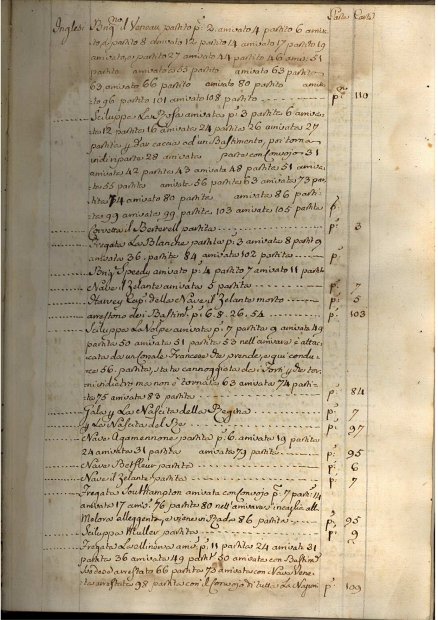 Parte Carte
Inglesi Brig.no il Vaneau partito p.a 2 arrivato 4 partito 6 arriva=
to, e partito 8 arrivato 12 partito 14 arrivato 17 partito 19
arrivato, e partito 27 arrivato 44 partito 46 arriv. 51
partito arrivato 63 partito arrivato 63 partito
63 arrivato 66 partito arrivato 80 partito arriva
to 96 partito 101 arrivato 108 partito p.a 110
Sciluppo La Rosa arrivata p.a 3 partita 6 arriva=
ta 12 partita 16 arrivata 24 partita 26 arrivata 27
partita p. dar caccia ad un Bastimento, poi torna
indi riparte 28 arrivata parte con Convojo 31
arrivata 42 partita 43 arrivata 48 partita 51 arriva
ta 55 partita arrivata 56 partita 63 arrivata 73 par
tita 74 arrivata 80 partita arrivata 86 parti=
ta 99 arrivata 99 partita 103 arrivata 105 partita p.
Corvetta il Berterell partita p.a 3
Fregata La Blanche partita p.a 3 arrivata 8 partita 9
arrivata 36 partita 84 arrivata 102 partita p.
Brig. Speedy arrivato p.a 4 partito 7 arrivato 11 partito
Nave l'Zelante arrivata 5 partita p.a 7
Harvey Cap.o della Nave l'Zelante morto p.a 5
arrestono dei Bastim.i p.i 6. 8. 26. 54 p.a 103
Sciluppo La Volpe arrivata p.a 7 partita 9 arrivata 49
partita 50 arrivata 51 partita 53 nell'arrivare è attac=
cata da un Corsale Francese che prende, e qui condu=
ce 56. partita, stata cannoggiata dai Forti
ma non è tornata 63 arrivata 74 parti=
ta 75 arrivata 83 partita p.a 84
Gala p. La Nascita della Regina p.a 7
p. La Nascita del Re p.a 97
Nave Agamennone partita p.a 6. arrivata 19 partita
24 arrivata 31 partita arrivata 79 partita p.a 95
Nave Belfleur partita p.a 6
Nave il Zelante partita p.a 7
Fregata Southampton arrivata con Convojo p.a 7 part. 14
arrivata 17 arriv. 76 partita 80 nell'arrivare incaglia alla
Melora alleggerita, e viene in Rada 86 partita p. 95
Sciluppa Muller partita p.a 9
Fregata La arriv. p.a 11 partita 24 arrivata 31
partita 36 arrivata 49 part. 50 arrivata con Bastim.
arrestato 66 partita 73 arrivata con Nave Vene
ta arrestata 98 partita con il Convojo di tutta La Nazion. p.a 109